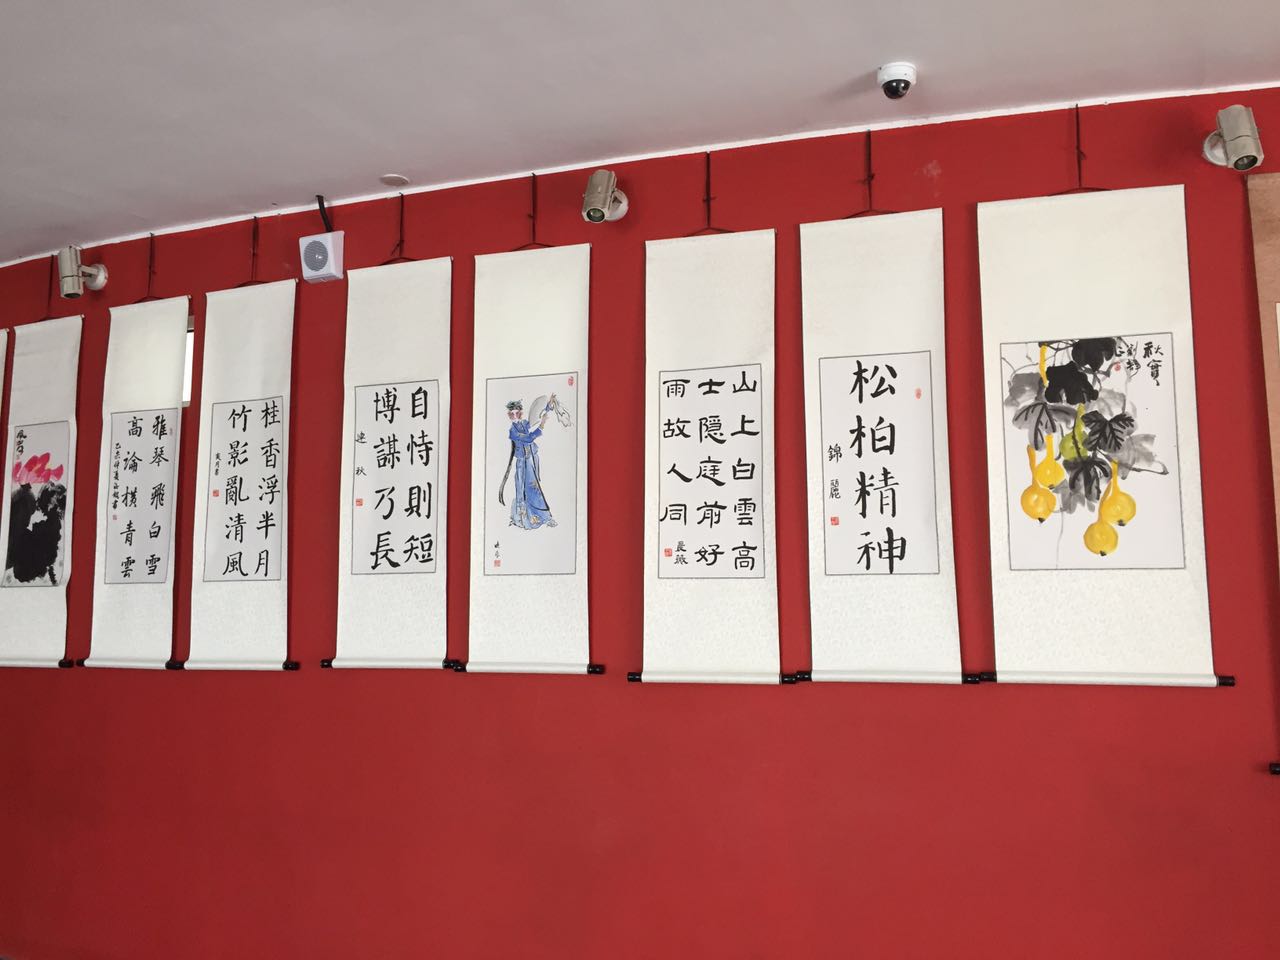 秋實
松柏精神
錦麗
山上白雲高
士隱庭前好
雨故人同
自恃則短
博謀乃長
連秋
桂香浮半月
竹影亂清風
雅琴飛白雪
高論橫青雲